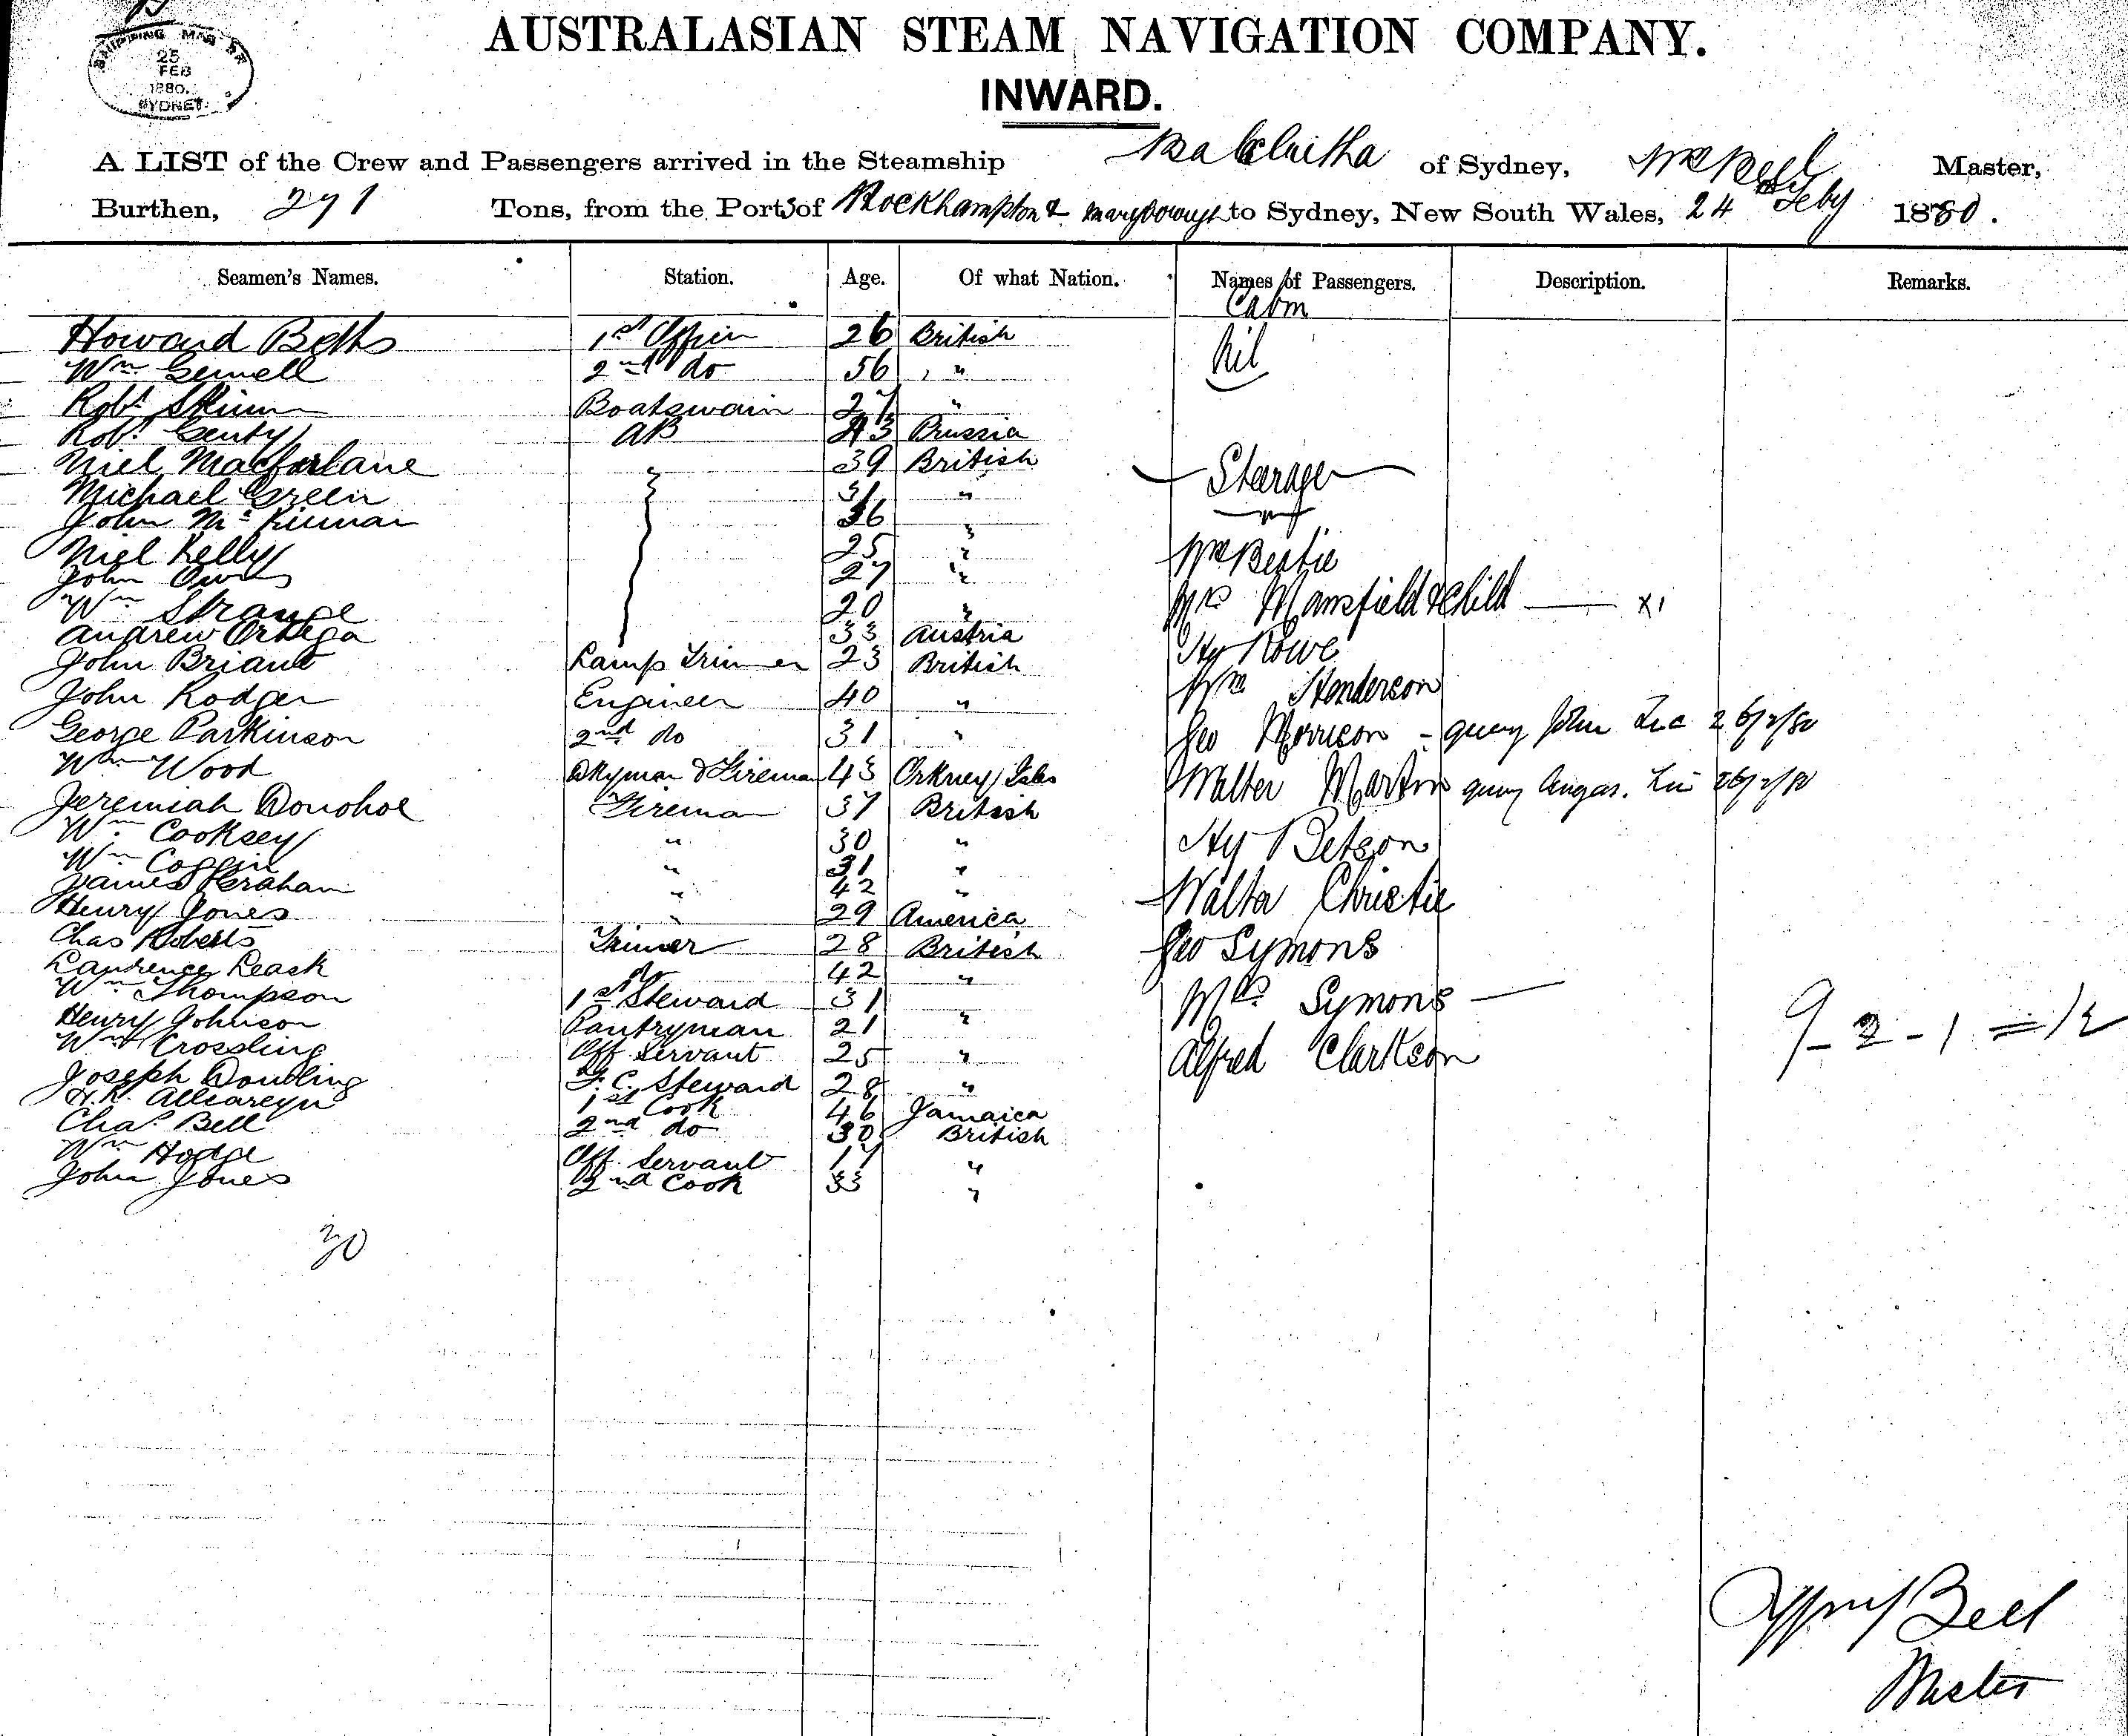 SHIPPING MASTER
25
FEB
1880.
SYDNEY
AUSTRALASIAN STEAM NAVIGATION COMPANY.
INWARD.
A LIST of the Crew and Passengers arrived in the Steamship Balclutha of Sydney, Wm Bell Master,
Burthen, 291 Tons, from the Ports of Rockhampton & Maryborough to Sydney, New South Wales, 24 Feby 1880.
Seamen's Names. Station. Age. Of what Nation. Names of Passengers. Description. Remarks.
Cabin
Howard Betts 1st Officer 26 British Nil
Wm Gemell 2nd do 56 "
Robt Skinn Boatswain 27 "
Robt Genty AB 43 Prussia
Niel Macfarlane " 39 British Steerage
Michael Green 31 "
John McKinnan 36 "
Niel Kelly 25 " Wm Beattie
John Owens 27 "
Wm Strange 20 " Mrs Mansfield & Child x1
Andrew Ortega 33 Austria Hy Rowe
John Briant Lamp Trimmer 23 British
John Rodger Engineer 40 " Wm Henderson
George Parkinson 2nd do 31 " Geo Morrison - query John 26/2/80
Wm Wood Dkyman & Fireman 43 Orkney Isles Walter Martin query Angas. 26/2/80
Jeremiah Donohoe Fireman 37 British
Wm Cooksey " 30 " Hy Betson
Wm Coffin " 31 "
James Graham " 42 " Walter Christie
Henry Jones " 29 America
Chas Roberts Trimmer 28 British Geo Symons
Laurence Leask do 42 "
Wm Thompson 1st Steward 31 " Mrs Symons
Henry Johnson Pantryman 21 " 9-2-1=12
Wm Crossling Off Servant 25 " Alfred Clarkson
Joseph Dowling F.C. Steward 28 "
H.R. 1st Cook 46 Jamaica
Chas Bell 2nd do 30 British
Wm Hodge Off Servant 17 "
John Jones 2nd Cook 33 "
30
Bell
Master